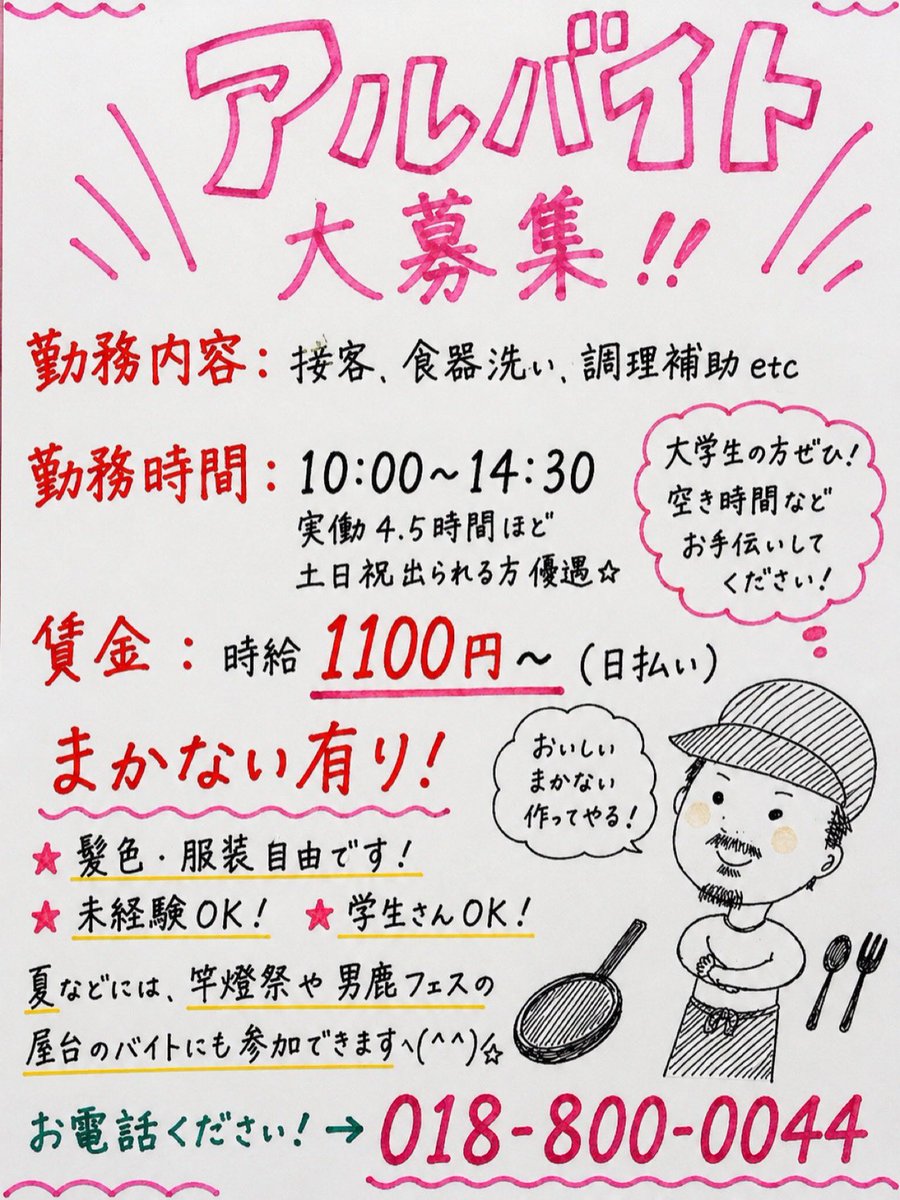 アルバイト
大募集!!
勤務内容: 接客、食器洗い、調理補助 etc
勤務時間: 10:00〜14:30
実働4.5時間ほど
土日祝出られる方優遇☆
大学生の方ぜひ!
空き時間など
お手伝いして
ください!
賃金: 時給 1100円〜 (日払い)
まかない有り!
おいしい
まかない
作ってやる!
★ 髪色・服装自由です!
★ 未経験OK! ★ 学生さんOK!
夏などには、竿燈祭や男鹿フェスの
屋台のバイトにも参加できますヘ(^^)☆
お電話ください!→ 018-800-0044